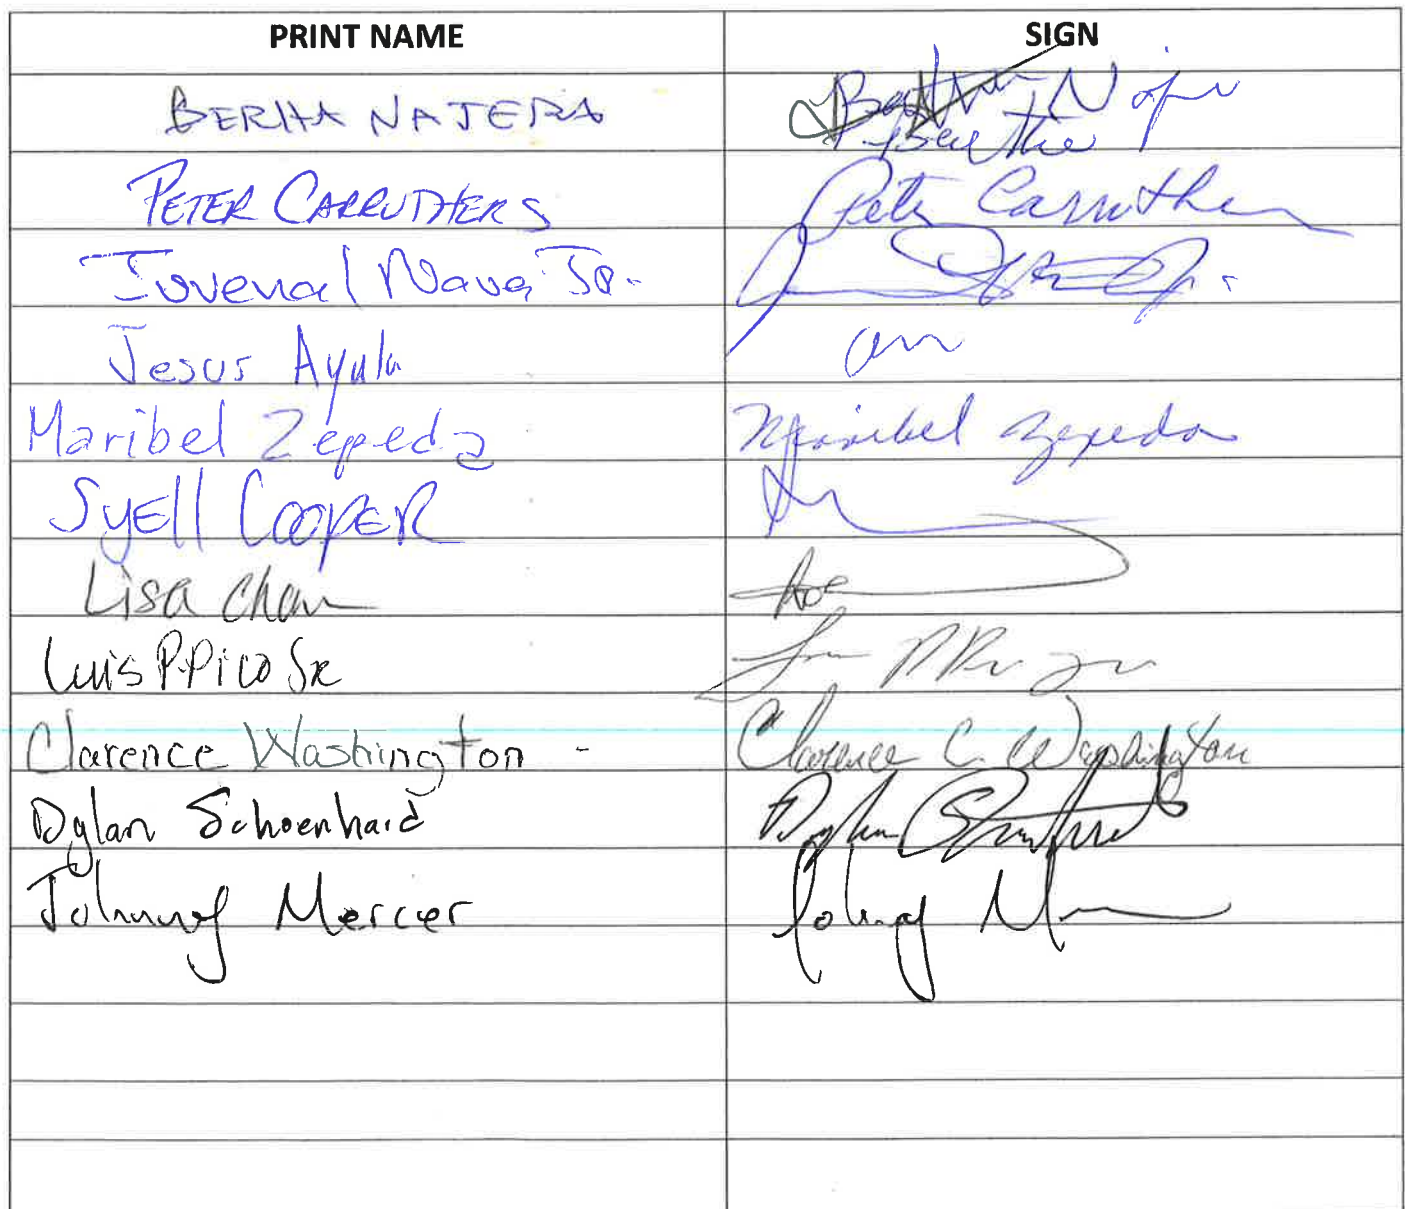 PRINT NAME SIGN
BERTHA NAJERA
PETER CARRUTHERS Pete Carruthers
Juvenal Nava Jr.
Jesus Ayala
Maribel Zepeda Maribel Zepeda
SyEll COOPER
Lisa Chan
Luis P. Pico Sr
Clarence Washington - Clarence C. Washington
Dylan Schoenhard Dylan
Johnny Mercer Johnny M